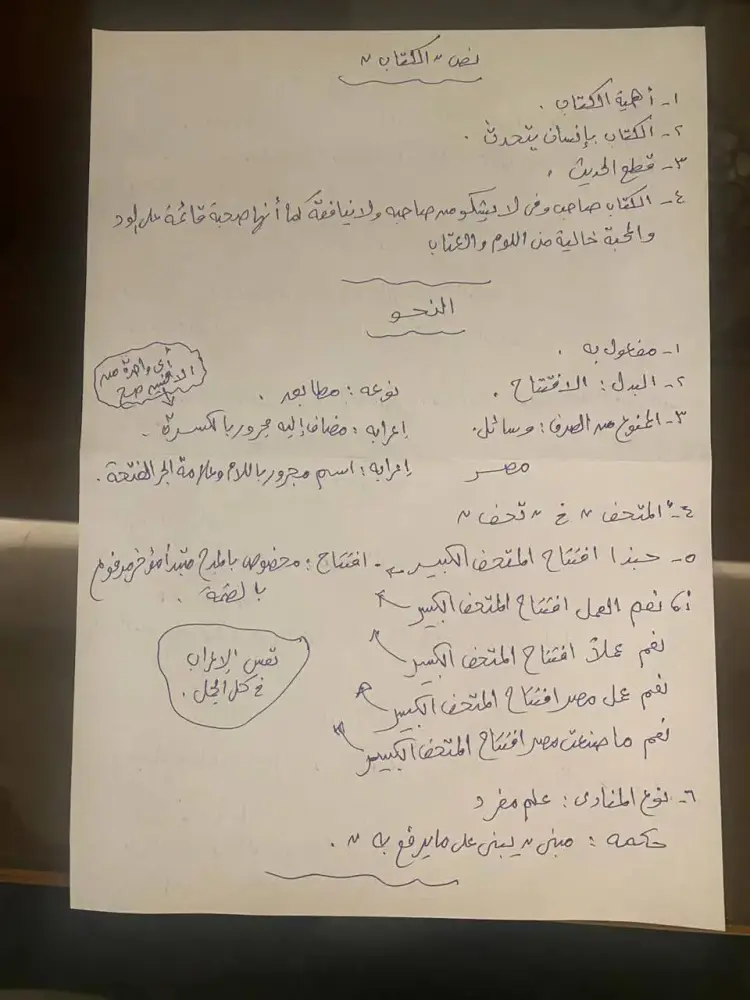 نص " الكتاب "
١- أهمية الكتاب .
٢- الكتاب بإنسان يتحدث .
٣- قطع الحديث .
٤- الكتاب صاحب وفى لا يشكو من صاحبه ولا ينافقه كما أنها صحبة قائمة على الود
والمحبة خالية من اللوم والعتاب
النحو
١- مفعول به .
٢- البدل : الافتتاح . نوعه : مطابق .
أى واحدة من الاثنين صح
٣- الممنوع من الصرف : وسائل . إعرابه : مضاف إليه مجرور بالكسرة .
مصر إعرابه : اسم مجرور باللام وعلامة الجر الفتحة .
٤- " المتحف " في " تحف "
٥- حبذا افتتاح المتحف الكبير - افتتاح : مخصوص بالمدح مبتدأ مؤخر مرفوع
بالضمة .
نعم العمل افتتاح المتحف الكبير
نعم عملاً افتتاح المتحف الكبير
نفس الإعراب
في كل الجمل .
نعم عمل مصر افتتاح المتحف الكبير
نعم ما صنعت مصر افتتاح المتحف الكبير
٦- نوع المنادى : علم مفرد
حكمه : مبنى " يبنى على ما يرفع به " .